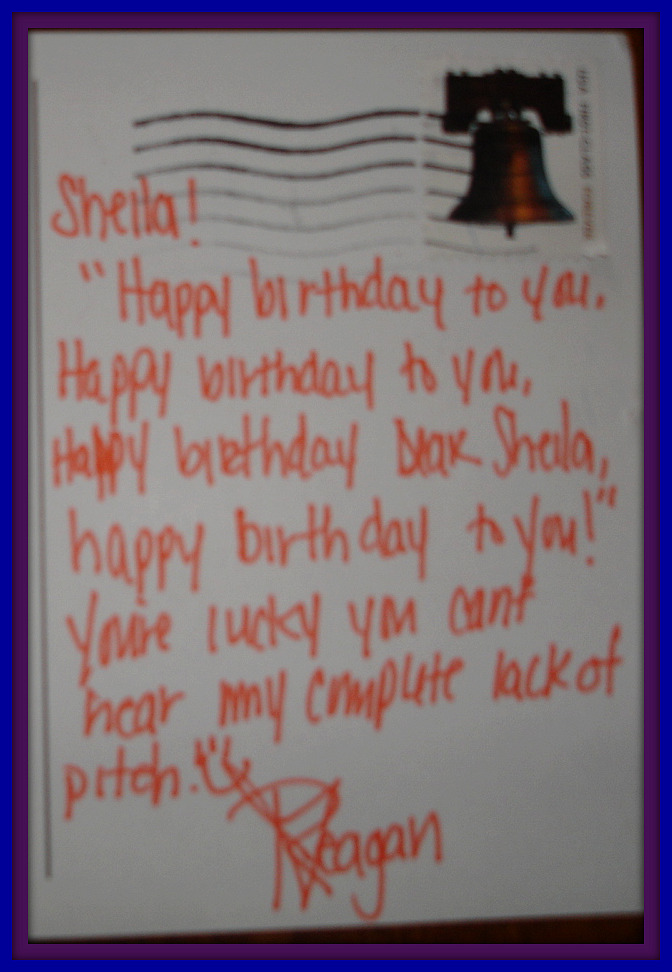 Sheila!
"Happy birthday to you.
Happy birthday to you,
Happy birthday Dear Sheila,
happy birthday to you!"
You're lucky you can't
hear my complete lack of
pitch.
Reagan